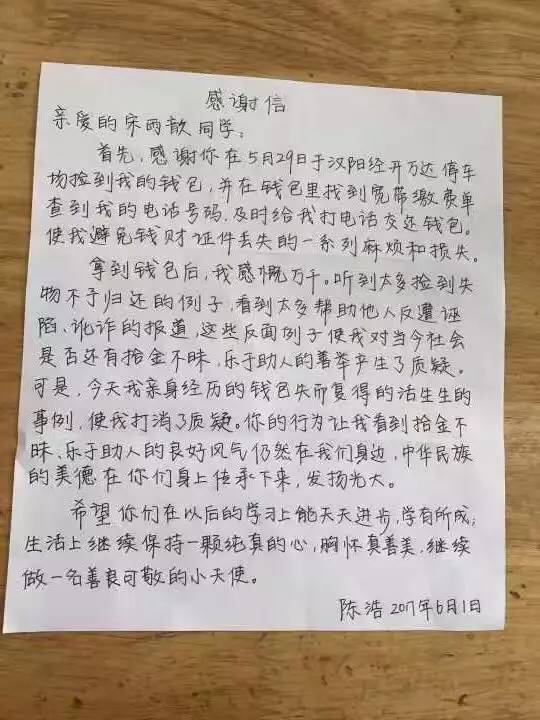 感谢信
亲爱的宋雨歆同学:
首先,感谢你在5月29日于汉阳经开万达停车
场捡到我的钱包,并在钱包里找到宽带缴费单
查到我的电话号码,及时给我打电话交还钱包。
使我避免钱财证件丢失的一系列麻烦和损失。
拿到钱包后,我感慨万千。听到太多捡到失
物不予归还的例子,看到太多帮助他人反遭诬
陷、讹诈的报道,这些反面例子使我对当今社会
是否还有拾金不昧、乐于助人的善举产生了质疑。
可是,今天我亲身经历的钱包失而复得的活生生的
事例,使我打消了质疑。你的行为让我看到拾金不
昧、乐于助人的良好风气仍然在我们身边,中华民族
的美德在你们身上传承下来,发扬光大。
希望你们在以后的学习上能天天进步,学有所成;
生活上继续保持一颗纯真的心,胸怀真善美,继续
做一名善良可敬的小天使。
陈浩 2017年6月1日